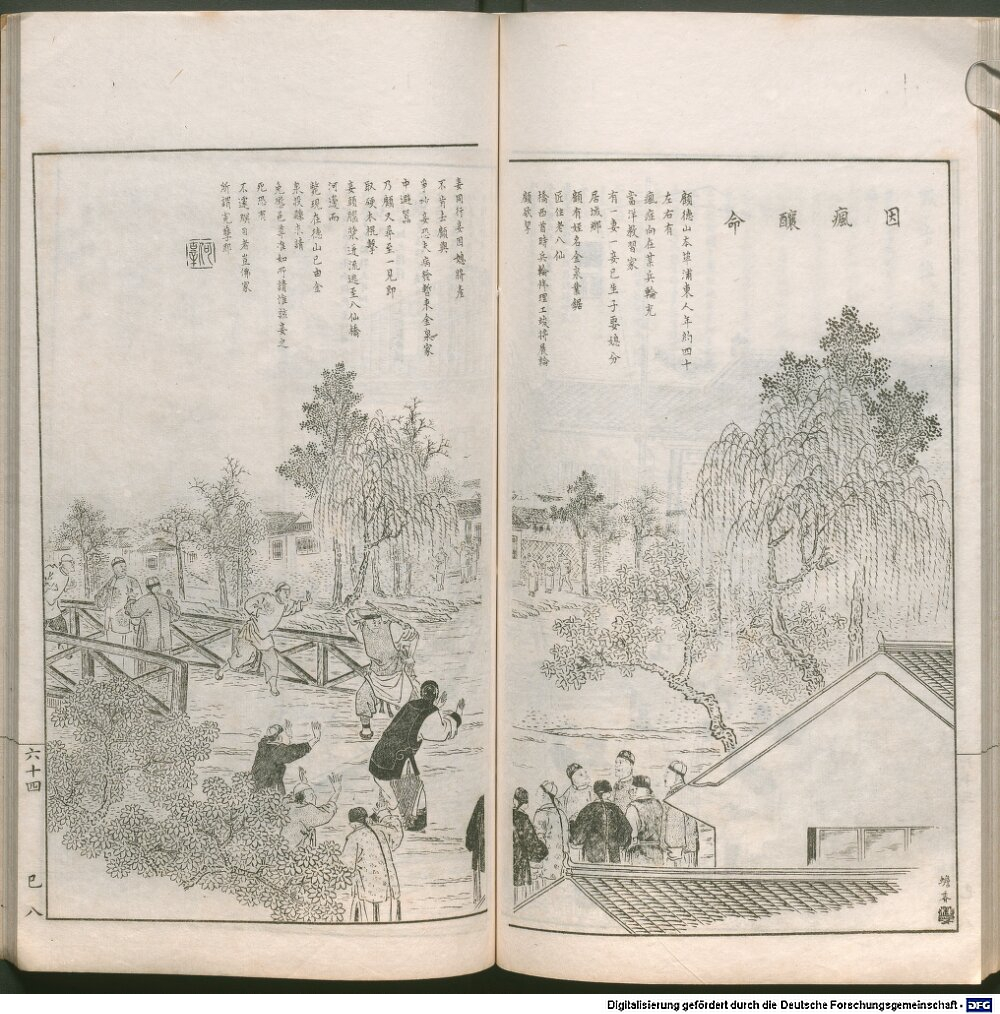 因瘋釀命
顧德山本溢浦東人年約四十
左右有
瘋症向在某兵輪充
當洋教習家
有一妻一妾已生子要媳分
居城鄉
顧有姪名金泉業鋸
匠住老八仙
橋西首時兵輪修理工竣將展輪
顧欲挈
妾同行妾因媳將產
不肯去顧與
爭吵妾恐夫病發暫來金泉家
中避囂
乃顧又尋至一見即
取硬木棍擊
妾頭腦漿迸流遁至八仙橋
河邊而
斃現在德山已由金
泉投縣求請
免驗邑尊准如所請惟該妾之
死恐有
不遑瞑目者豈佛家
所謂冤孽耶
六十四
巳
八
蟾香
Digitalisierung gefördert durch die Deutsche Forschungsgemeinschaft - DFG